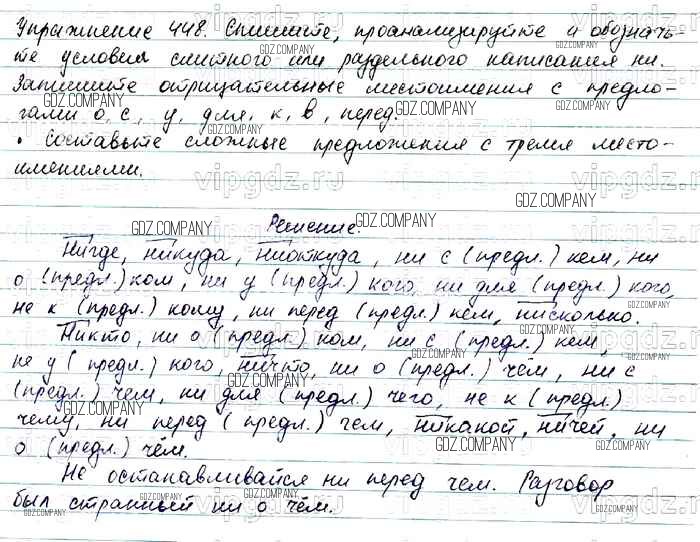 Упражнение 448. Спишите, проанализируйте и обозначь-
те условия слитного или раздельного написания ни.
Запишите отрицательные местоимения с предло-
гами о, с, у, для, к, в, перед.
• Составьте сложные предложения с тремя место-
имениями.
Решение.
Нигде, никуда, ниоткуда, ни с (предл.) кем, ни
о (предл.) ком, ни у (предл.) кого, ни для (предл.) кого,
не к (предл.) кому, ни перед (предл.) кем, нисколько.
Никто, ни о (предл.) ком, ни с (предл.) кем,
не у (предл.) кого, ничто, ни о (предл.) чём, ни с
(предл.) чем, ни для (предл.) чего, не к (предл.)
чему, ни перед (предл.) чем, никакой, ничей, ни
о (предл.) чём.
Не останавливайся ни перед чем. Разговор
был странный ни о чём.
GDZ.COMPANY
vipgdz.ru